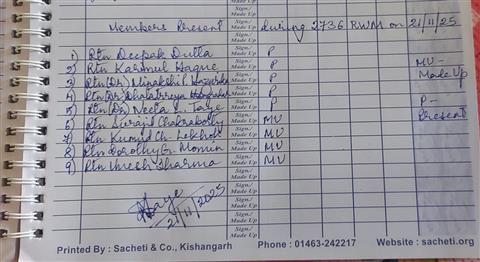 Sign./
Made Up
Members Present during 2736 RWM on 21/11/25
1) Rtn Deepak Dutta Sign./ Made Up P
2) Rtn Karimul Haque Sign./ Made Up P MU -
3) Rtn (Dr) Minakshi Hazarika Sign./ Made Up P Made Up
4) Rtn (Dr) Sign./ Made Up P
5) Rtn (Dr) Neeta Taye Sign./ Made Up P P -
6) Rtn Suraj Chakraborty Sign./ Made Up MU Present
7) Rtn Kumud Ch. Sign./ Made Up MU
8) Rtn Dorothy G. Momin Sign./ Made Up MU
9) Rtn Umesh Sharma Sign./ Made Up MU
Sign./
Made Up
Taye Sign./
Made Up
21/11/2025 Sign./
Made Up
Printed By : Sacheti & Co., Kishangarh Phone : 01463-242217 Website : sacheti.org